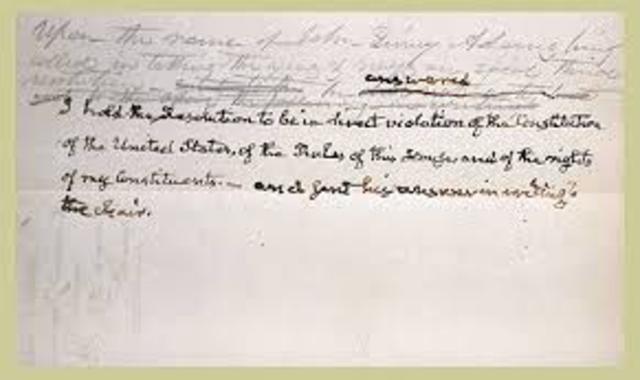 Upon the name of John Quincy Adams being
called in taking the
answered
I hold the Resolution to be in direct violation of the Constitution
of the United States, of the Rules of this House, and of the rights
of my Constituents. — and sent his answer in writing to
the Chair.